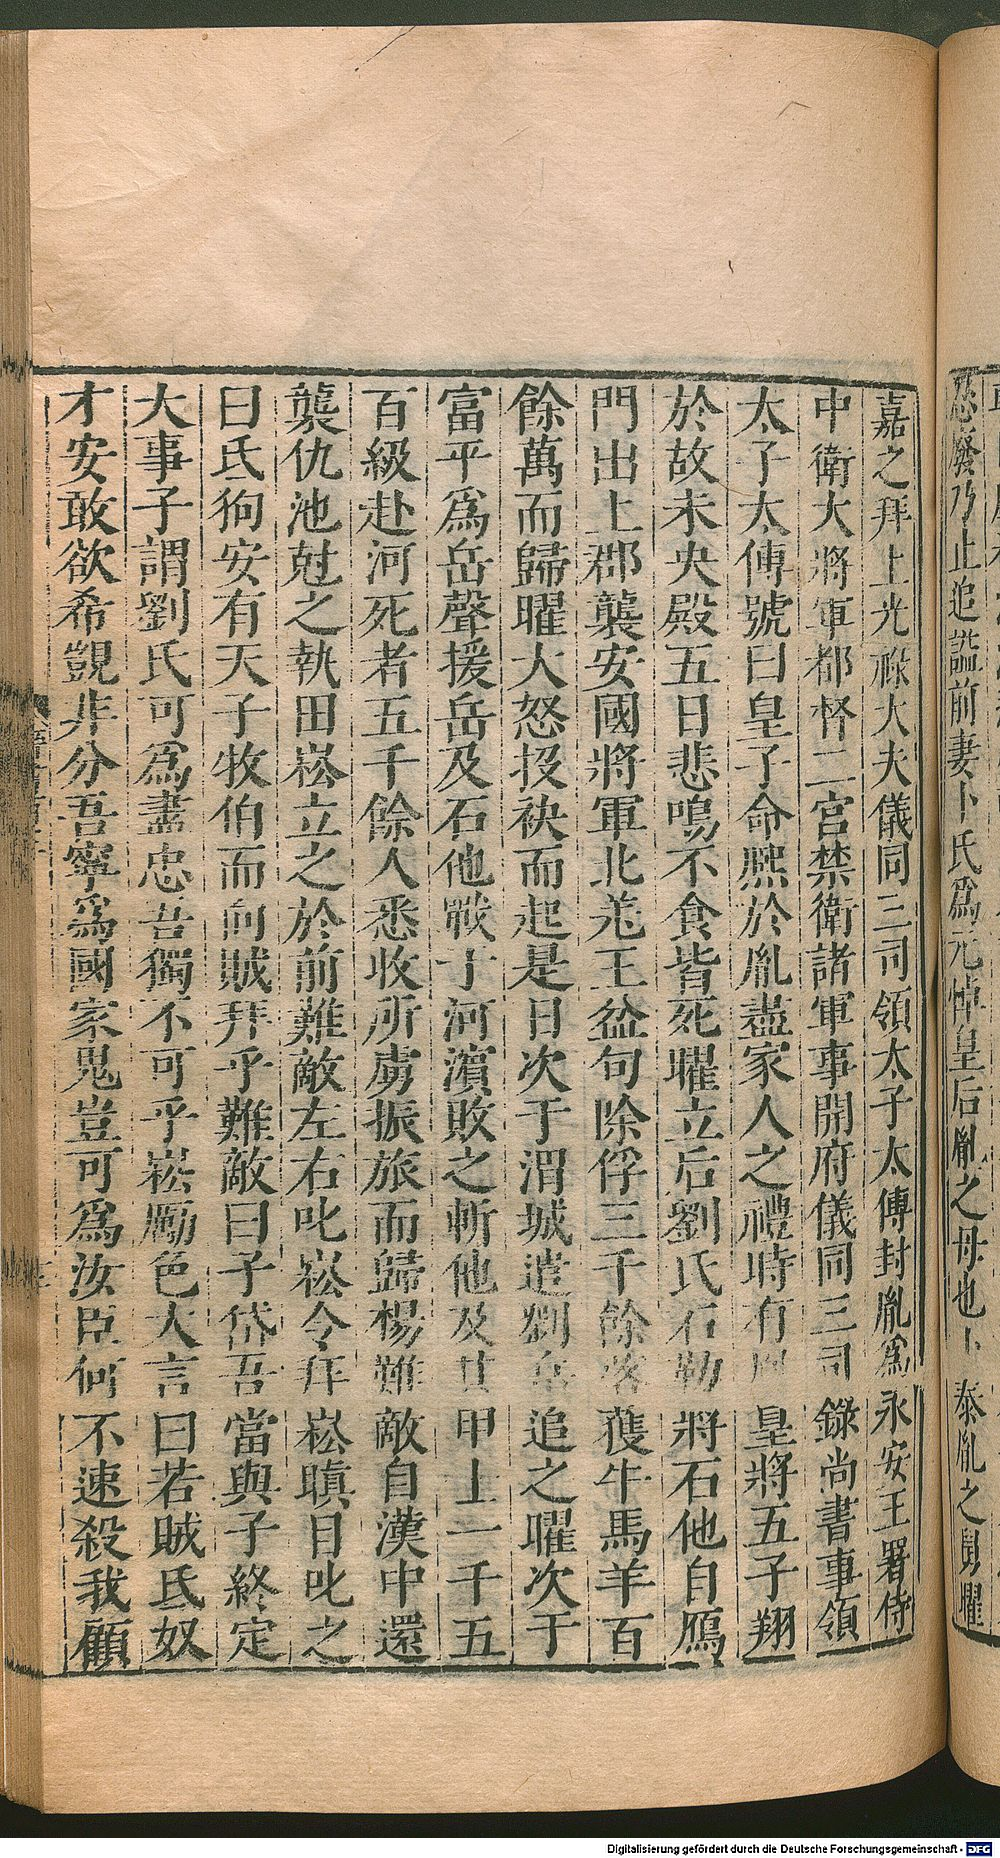 恐廢乃止追謚前妻卜氏爲元悼皇后胤之母也卜泰胤之舅曜
嘉之拜上光祿大夫儀同三司領太子太傅封胤爲永安王署侍
中衛大將軍都督二宮禁衛諸軍事開府儀同三司錄尚書事領
太子太傅號曰皇子命熙於胤盡家人之禮時有鳳皇將五子翔
於故未央殿五日悲鳴不食皆死曜立后劉氏石勒將石他自鴈
門出上郡襲安國將軍北羌王盆句除俘三千餘落獲牛馬羊百
餘萬而歸曜大怒投袂而起是日次于渭城遣劉岳追之曜次于
富平爲岳聲援岳及石他戰于河濱敗之斬他及其甲士一千五
百級赴河死者五千餘人悉收所虜振旅而歸楊難敵自漢中還
襲仇池尅之執田崧立之於前難敵左右叱崧令拜崧瞋目叱之
曰氐狗安有天子牧伯而向賊拜乎難敵曰子岱吾當與子終定
大事子謂劉氏可爲盡忠吾獨不可乎崧厲色大言曰若賊氐奴
才安敢欲希覬非分吾寧爲國家鬼豈可爲汝臣何不速殺我顧
Digitalisierung gefördert durch die Deutsche Forschungsgemeinschaft - DFG